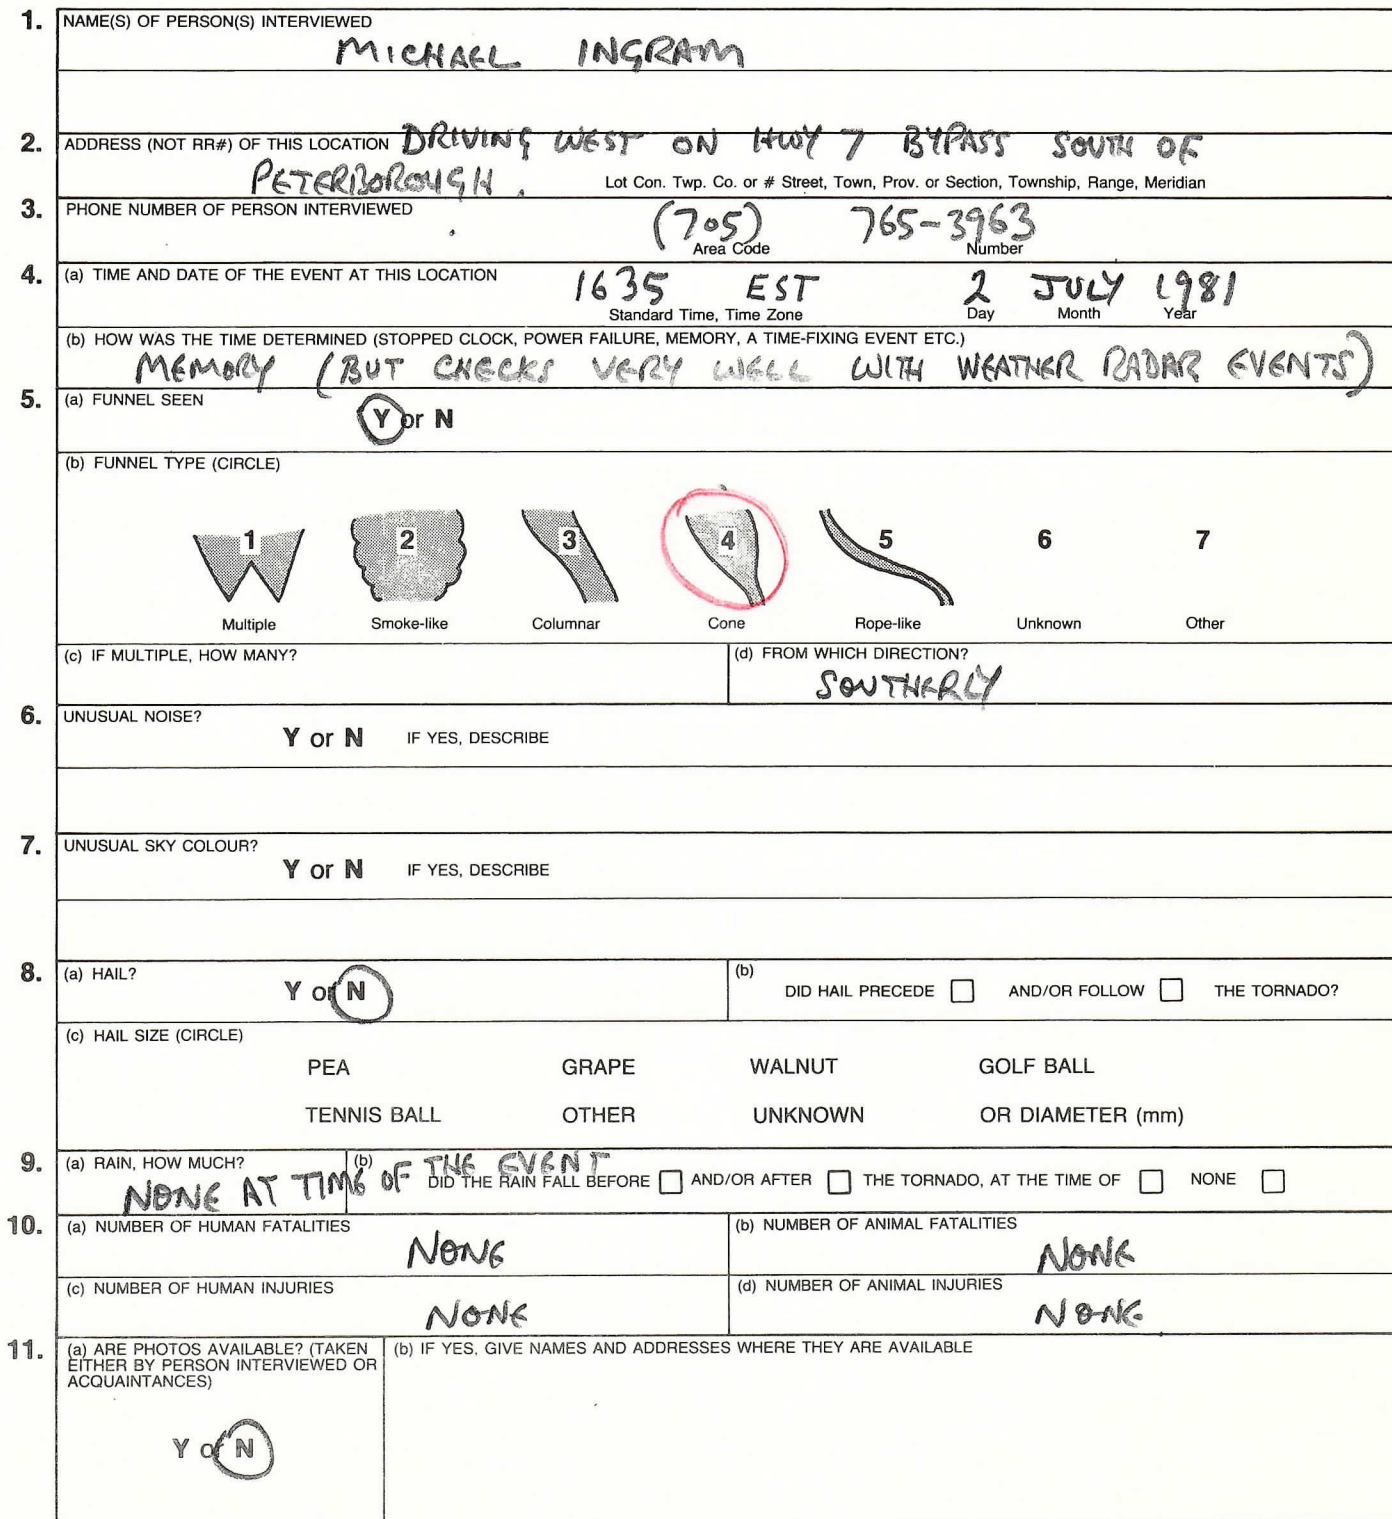 1. NAME(S) OF PERSON(S) INTERVIEWED
MICHAEL INGRAM
2. ADDRESS (NOT RR#) OF THIS LOCATION DRIVING WEST ON HWY 7 BYPASS SOUTH OF
PETERBOROUGH. Lot Con. Twp. Co. or # Street, Town, Prov. or Section, Township, Range, Meridian
3. PHONE NUMBER OF PERSON INTERVIEWED (705) 765-3963
Area Code Number
4. (a) TIME AND DATE OF THE EVENT AT THIS LOCATION 1635 EST 2 JULY 1981
Standard Time, Time Zone Day Month Year
(b) HOW WAS THE TIME DETERMINED (STOPPED CLOCK, POWER FAILURE, MEMORY, A TIME-FIXING EVENT ETC.)
MEMORY (BUT CHECKS VERY WELL WITH WEATHER RADAR EVENTS)
5. (a) FUNNEL SEEN
Y or N
(b) FUNNEL TYPE (CIRCLE)
1 2 3 4 5 6 7
Multiple Smoke-like Columnar Cone Rope-like Unknown Other
(c) IF MULTIPLE, HOW MANY? (d) FROM WHICH DIRECTION?
SOUTHERLY
6. UNUSUAL NOISE?
Y or N IF YES, DESCRIBE
7. UNUSUAL SKY COLOUR?
Y or N IF YES, DESCRIBE
8. (a) HAIL? Y or N (b) DID HAIL PRECEDE AND/OR FOLLOW THE TORNADO?
(c) HAIL SIZE (CIRCLE)
PEA GRAPE WALNUT GOLF BALL
TENNIS BALL OTHER UNKNOWN OR DIAMETER (mm)
9. (a) RAIN, HOW MUCH? (b) DID THE RAIN FALL BEFORE AND/OR AFTER THE TORNADO, AT THE TIME OF NONE
NONE AT TIME OF THE EVENT
10. (a) NUMBER OF HUMAN FATALITIES (b) NUMBER OF ANIMAL FATALITIES
NONE NONE
(c) NUMBER OF HUMAN INJURIES (d) NUMBER OF ANIMAL INJURIES
NONE NONE
11. (a) ARE PHOTOS AVAILABLE? (TAKEN (b) IF YES, GIVE NAMES AND ADDRESSES WHERE THEY ARE AVAILABLE
EITHER BY PERSON INTERVIEWED OR
ACQUAINTANCES)
Y or N